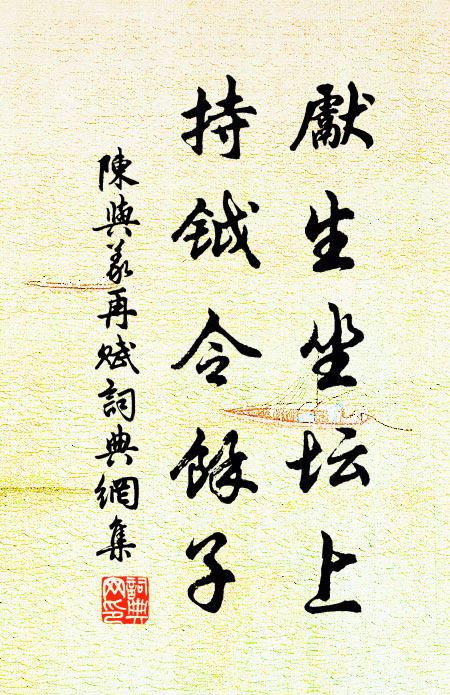 獻生坐坛上
持鉞令餘子
陳與義再賦詞典網集
詞典
網印